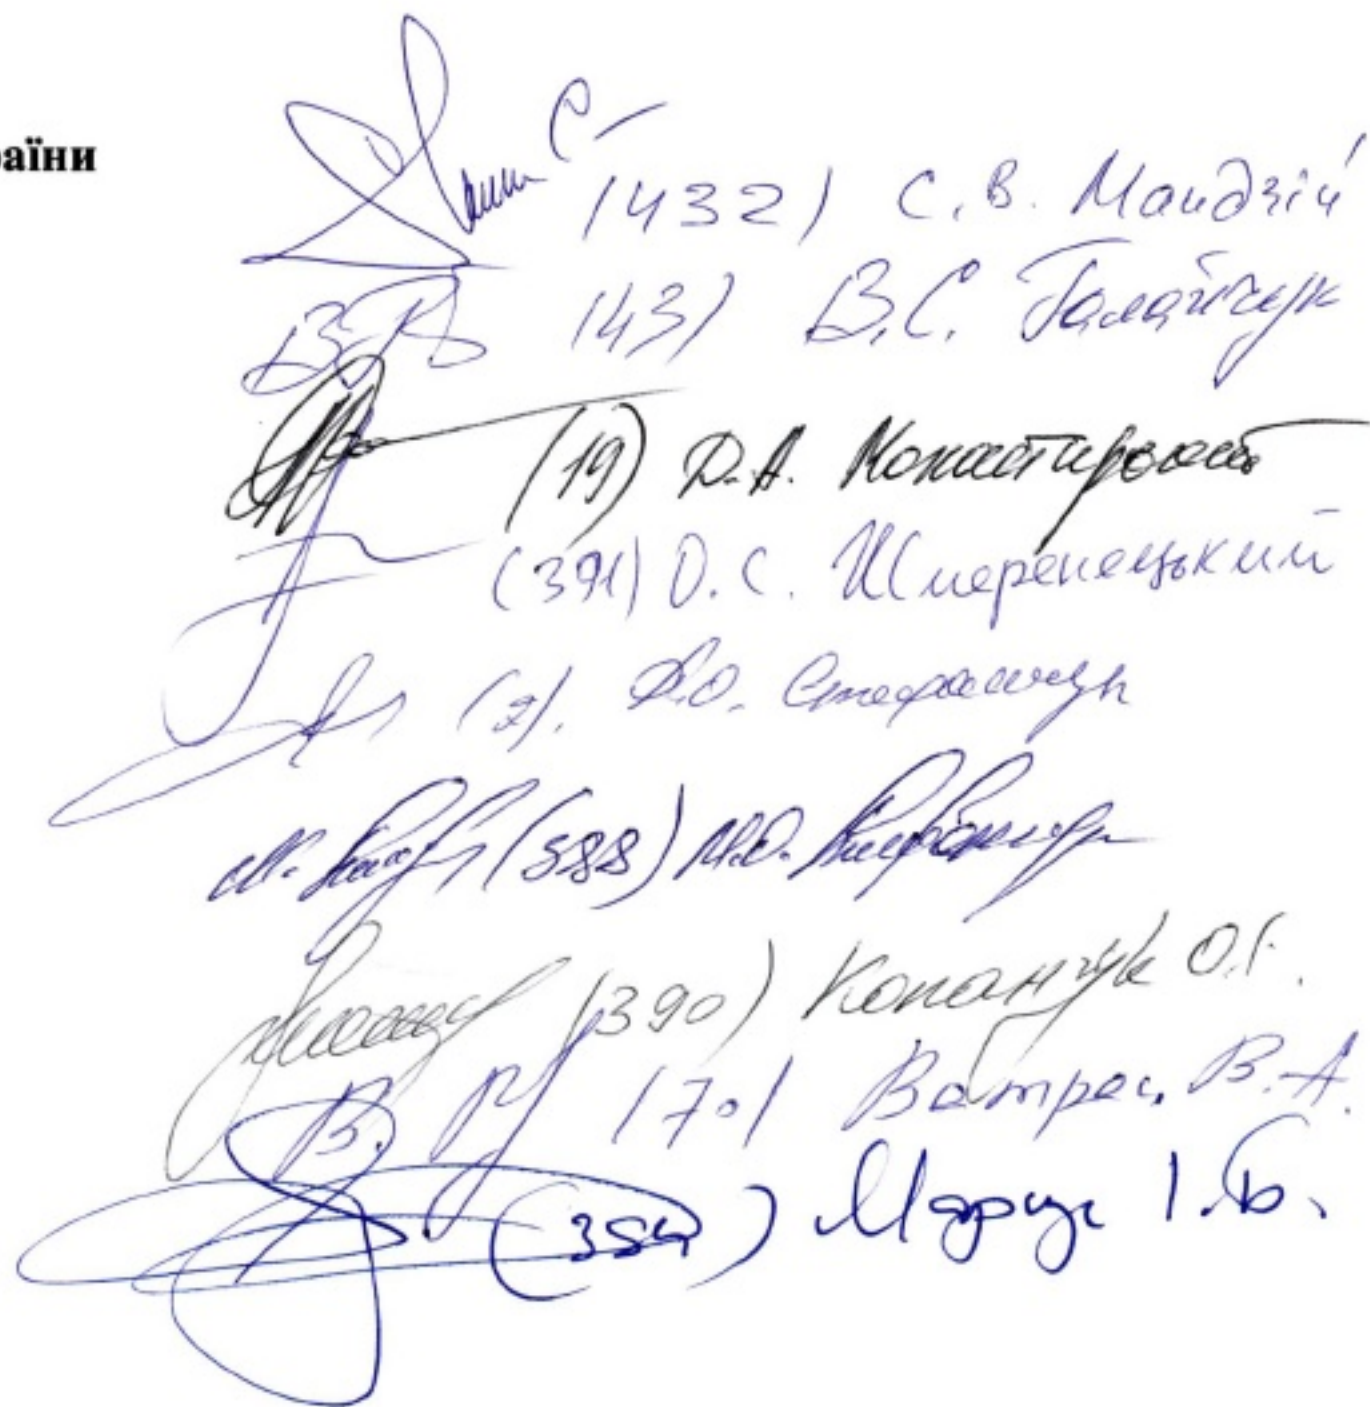 аїни
(432) С.В. Мандзій
(43) В.С. Галайчук
(19) Д.А. Монастирський
(391) О.С. Шмеренецький
(2). Р.О. Стефанчук
(388) М.О. Стефанчук
(390) Копанчук О.Г.
(70) Ватрас В.А.
(384) І.Б.